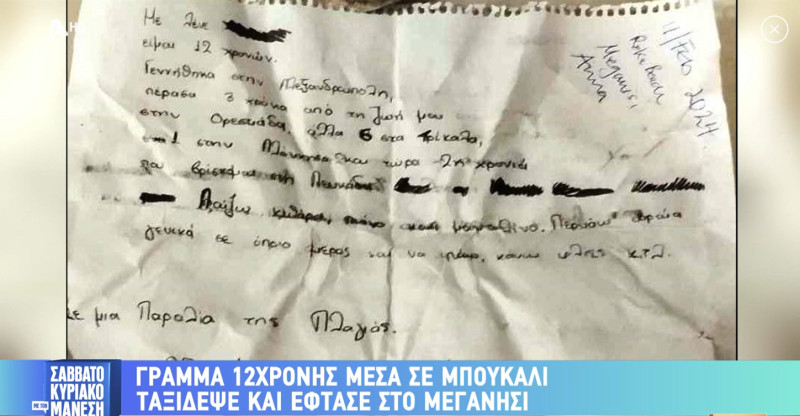 Με λένε
είμαι 12 χρονών.
Γεννήθηκα στην Αλεξανδρούπολη,
πέρασα 3 χρόνια από τη ζωή μου
στην Ορεστιάδα, άλλα 6 στα Τρίκαλα,
1 στην και τώρα 2η χρονιά
που βρίσκομαι στη
Παίζω κιθάρα, πιάνο Περνάω ωραία
γενικά σε όποιο μέρος και να πάω, κάνω φίλες κ.τ.λ.
Σε μια Παραλία της Πλαγιάς.
11/Feb 2024
Meganisi,
Anna
ΣΑΒΒΑΤΟ
ΚΥΡΙΑΚΟ
ΜΕ ΤΟΝ
ΜΑΝΕΣΗ
ΓΡΑΜΜΑ 12ΧΡΟΝΗΣ ΜΕΣΑ ΣΕ ΜΠΟΥΚΑΛΙ
ΤΑΞΙΔΕΨΕ ΚΑΙ ΕΦΤΑΣΕ ΣΤΟ ΜΕΓΑΝΗΣΙ